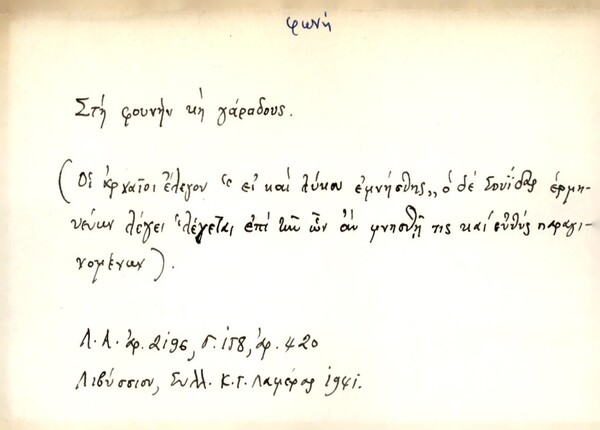 φωνή
Στή φουνήν κή γάραδους.
(Οἱ ἀρχαῖοι ἔλεγον "εἰ καί λύκου ἐμνήσθης„ ὁ δέ Σουΐδας ἑρμη-
νεύων λέγει "λέγεται ἐπί τῶν ὧν ἄν μνησθῇ τις καί εὐθύς παραγι-
νομένων).
Λ.Α. ἀρ. 2196, σ. 158, ἀρ. 420
Λιβύσσιον, Συλλ. Κ.Γ. Λαμέρας 1941.